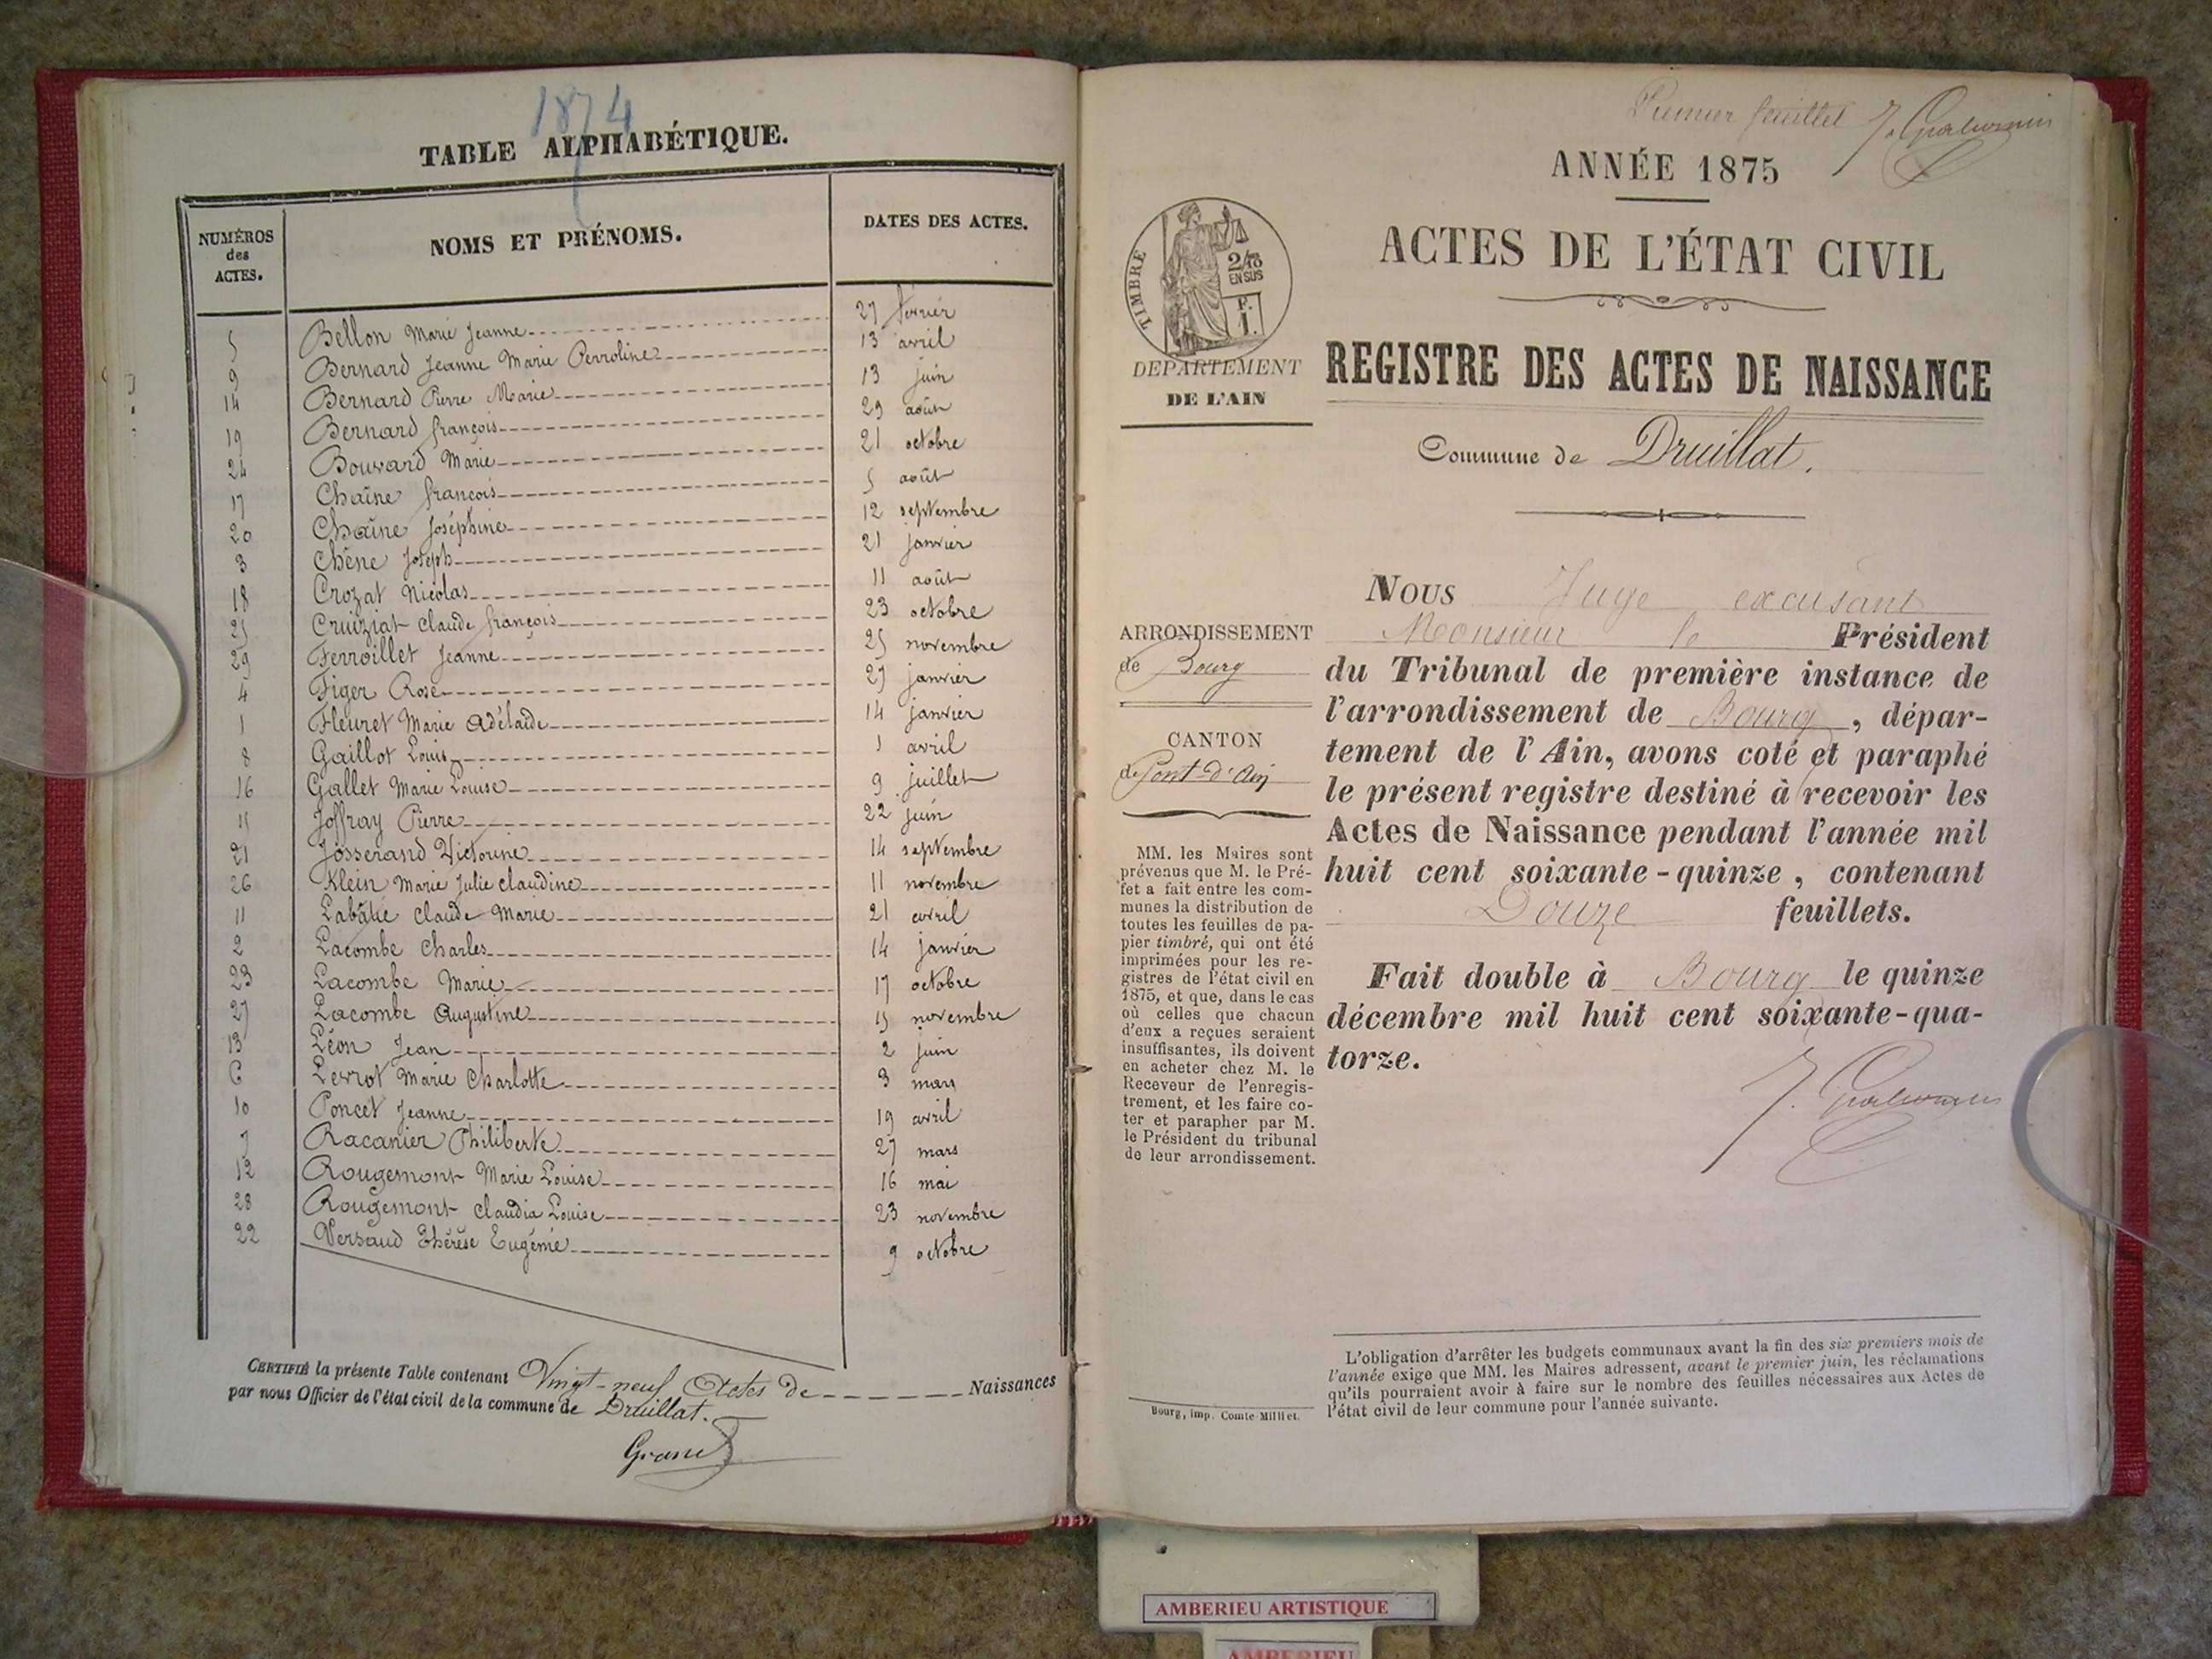 1874
TABLE ALPHABÉTIQUE.
NUMÉROS des ACTES. NOMS ET PRÉNOMS. DATES DES ACTES.
5 Bellon Marie Jeanne 27 février
9 Bernard Jeanne Marie Perroline 13 avril
14 Bernard Pierre Marie 13 juin
19 Bernard françois 29 août
24 Bouvard Marie 21 octobre
17 Chaîne françois 5 août
20 Chaîne Joséphine 12 septembre
3 Chêne Joseph 21 janvier
18 Crozat Nicolas 11 août
25 Cruiziat Claude françois 23 octobre
29 Ferroillet Jeanne 25 novembre
4 Figer Rose 27 janvier
1 Fleuret Marie Adélaïde 14 janvier
8 Gaillot Louis 1 avril
16 Gallet Marie Louise 9 juillet
15 Joffray Pierre 22 juin
21 Josserand Victorine 14 septembre
26 Klein Marie Julie Claudine 11 novembre
11 Labâtie Claude Marie 21 avril
2 Lacombe Charles 14 janvier
23 Lacombe Marie 17 octobre
27 Lacombe Augustine 15 novembre
13 Léon Jean 2 juin
6 Levrot Marie Charlotte 3 mars
10 Poncet Jeanne 19 avril
7 Racanier Philiberte 27 mars
12 Rougemont Marie Louise 16 mai
28 Rougemont Claudia Louise 23 novembre
22 Versaud Thérèse Eugénie 9 octobre
CERTIFIÉ la présente Table contenant Vingt-neuf Actes de Naissances
par nous Officier de l'état civil de la commune de Druillat.
Premier feuillet
ANNÉE 1875
ACTES DE L'ÉTAT CIVIL
TIMBRE
2/10
EN SUS
F.
1.
DÉPARTEMENT
DE L'AIN
REGISTRE DES ACTES DE NAISSANCE
Commune de Druillat.
ARRONDISSEMENT
de Bourg
CANTON
de Pont-d'Ain
MM. les Maires sont
prévenus que M. le Pré-
fet a fait entre les com-
munes la distribution de
toutes les feuilles de pa-
pier timbré, qui ont été
imprimées pour les re-
gistres de l'état civil en
1875, et que, dans le cas
où celles que chacun
d'eux a reçues seraient
insuffisantes, ils doivent
en acheter chez M. le
Receveur de l'enregis-
trement, et les faire co-
ter et parapher par M.
le Président du tribunal
de leur arrondissement.
Bourg, imp. Comte-Milliet.
NOUS Juge excusant
Monsieur le Président
du Tribunal de première instance de
l'arrondissement de Bourg, dépar-
tement de l'Ain, avons coté et paraphé
le présent registre destiné à recevoir les
Actes de Naissance pendant l'année mil
huit cent soixante-quinze, contenant
Douze feuillets.
Fait double à Bourg le quinze
décembre mil huit cent soixante-qua-
torze.
L'obligation d'arrêter les budgets communaux avant la fin des six premiers mois de
l'année exige que MM. les Maires adressent, avant le premier juin, les réclamations
qu'ils pourraient avoir à faire sur le nombre des feuilles nécessaires aux Actes de
l'état civil de leur commune pour l'année suivante.
AMBERIEU ARTISTIQUE
AMBERIEU